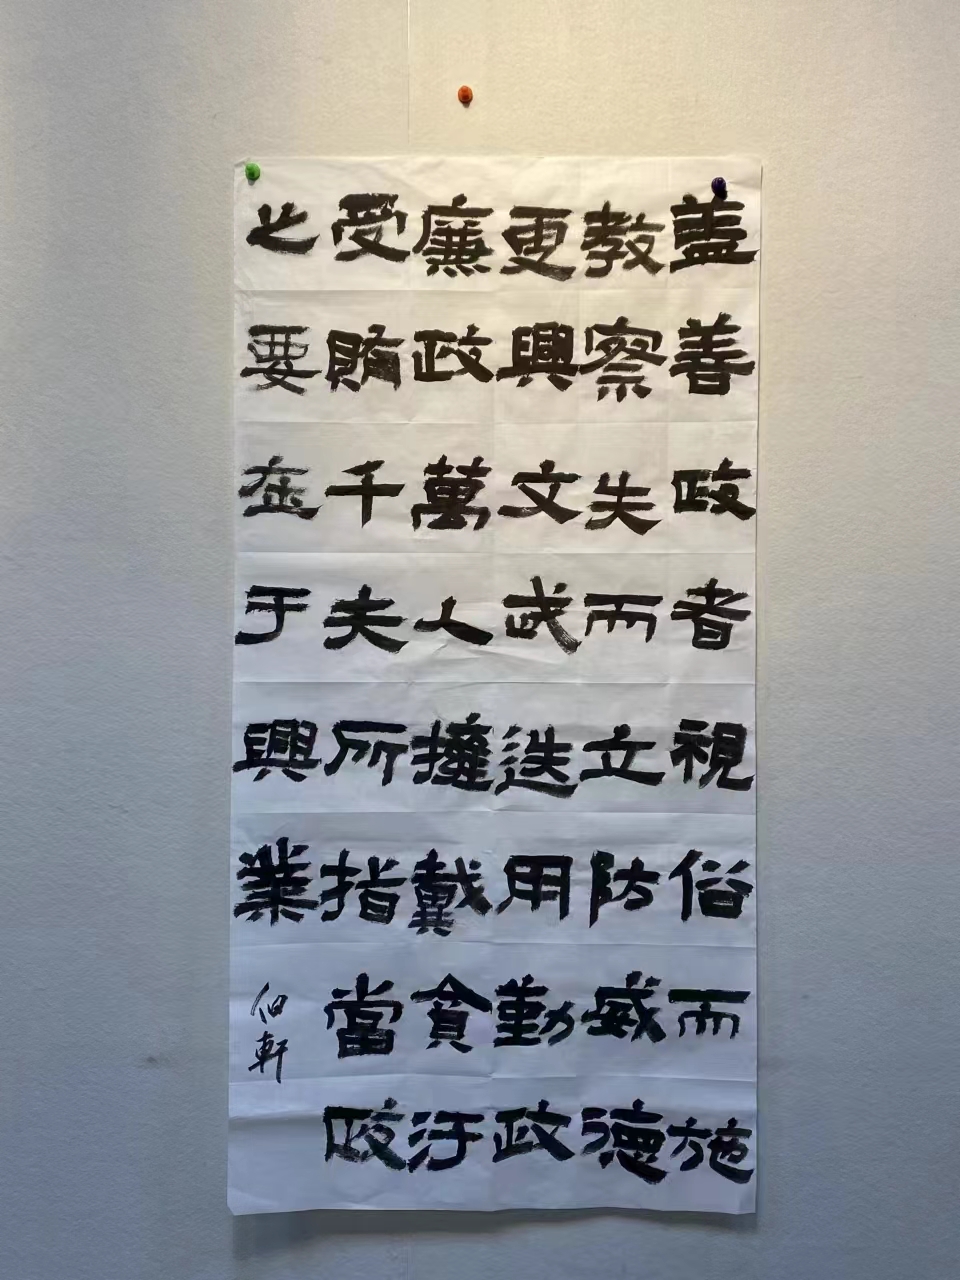 蓋善政者視俗而施
教察失而立防威德
更興文武迭用勤政
廉政萬人擁戴貪汙
受賄千夫所指當政
之要在于興業
伯軒